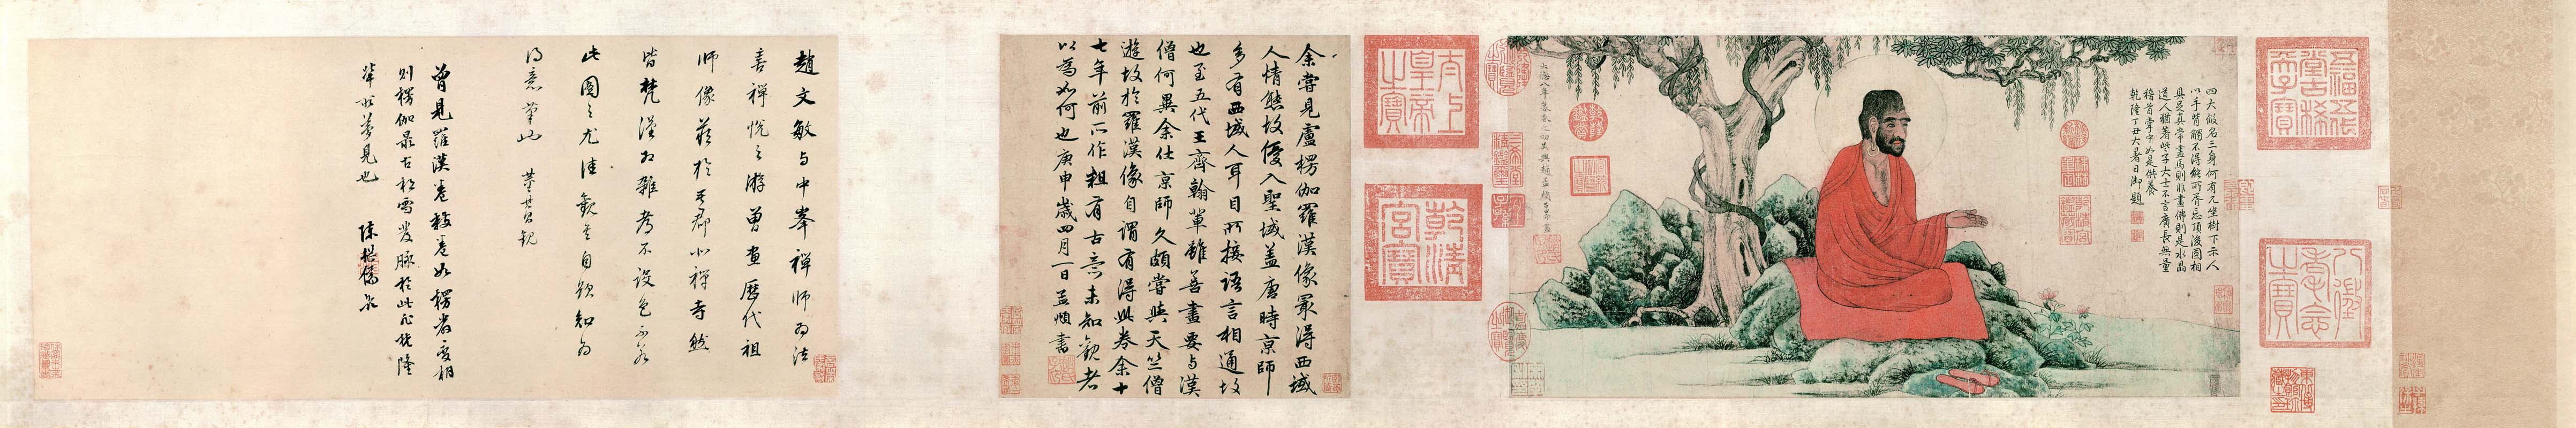 五福五代堂古稀天子寶
八徵耄念之寶
四大假名三身何有兀坐樹下示人
以手背觸不得能所胥忘頂後圓相
具足真常畫馬則非畫佛則是水晶
道人猶著些子大士不言廣長無量
稽首掌中如是供養
乾隆丁丑大暑日御題
大德八年暮春之初吳興趙孟頫子昂畫
太上皇帝之寶
乾清宮寶
余嘗見盧楞伽羅漢像最得西域
人情態故優入聖域蓋唐時京師
多有西域人耳目所接語言相通故
也至五代王齊翰輩雖善畫要與漢
僧何異余仕京師久頗嘗與天竺僧
遊故於羅漢像自謂有得此卷余十
七年前所作粗有古意未知觀者
以為如何也庚申歲四月一日孟頫書
趙文敏與中峯禪師為法
喜禪悅之游曾畫歷代祖
師像藏於吳郡小禪寺然
皆梵漢相雜不設色不若
此圖之尤佳觀其自跋知為
得意筆也 董其昌觀
曾見羅漢卷數卷如楞嚴變相
則楞伽最古松雪發脈於此非能隆
輩所夢見也 陳繼儒